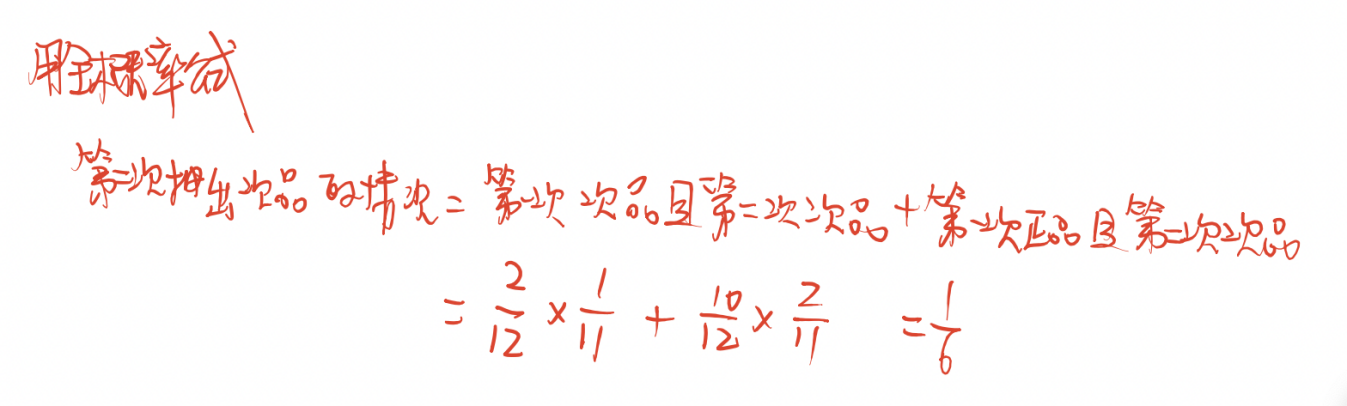 用全概率公式
第二次抽出次品的情况 = 第一次次品且第二次次品 + 第一次正品且第二次次品
= 2/12 × 1/11 + 10/12 × 2/11 = 1/6